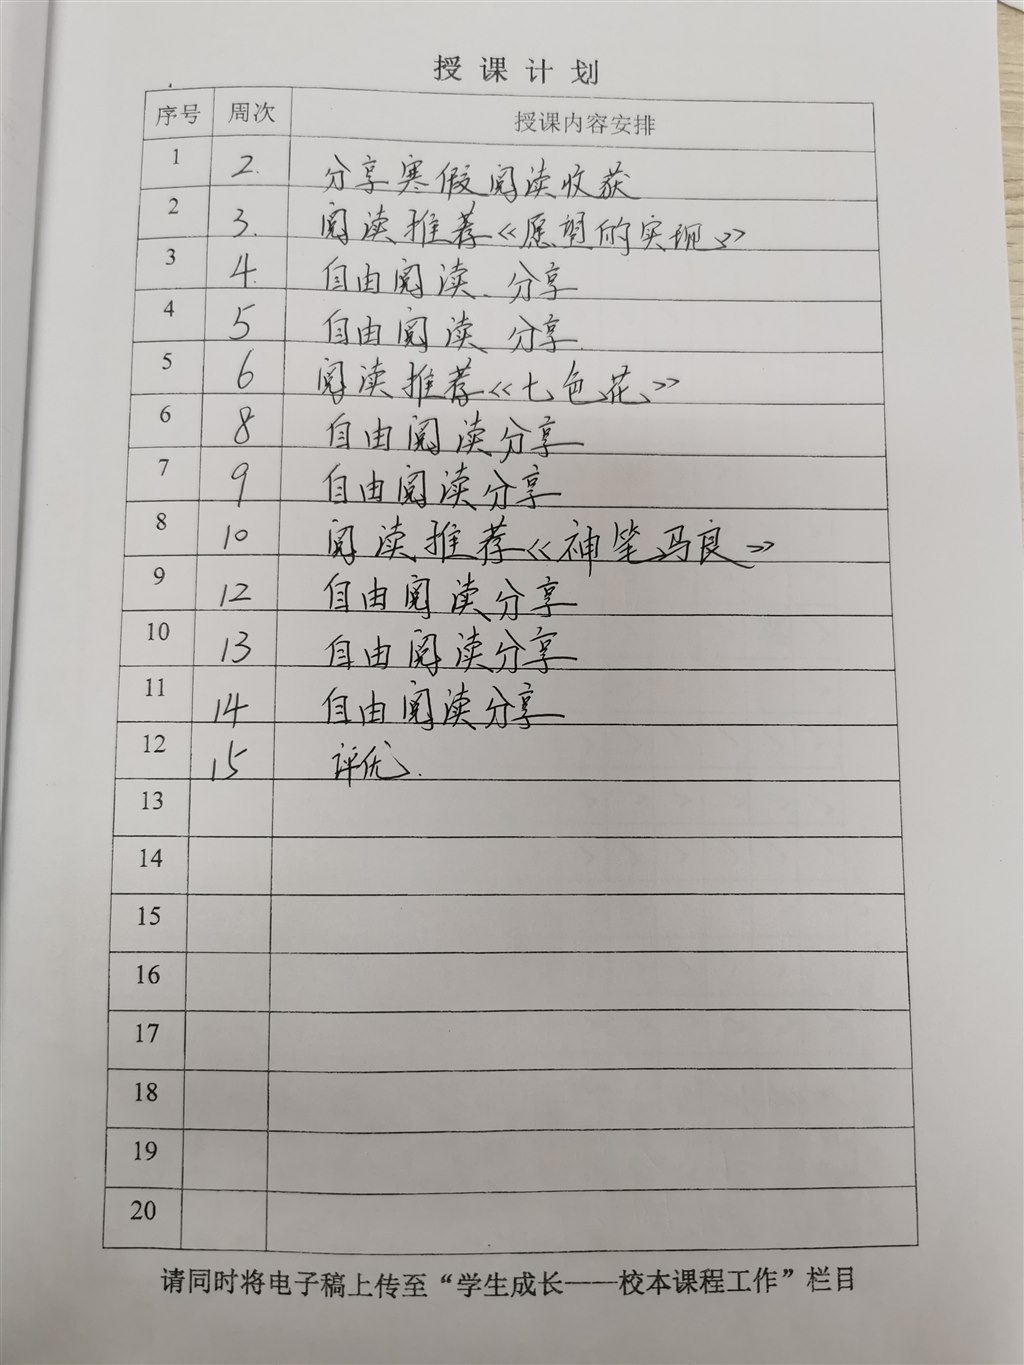 授课计划
序号 周次 授课内容安排
1 2. 分享寒假阅读收获
2 3. 阅读推荐《愿望的实现》
3 4. 自由阅读、分享
4 5 自由阅读 分享
5 6 阅读推荐《七色花》
6 8 自由阅读分享
7 9 自由阅读分享
8 10 阅读推荐《神笔马良》
9 12 自由阅读分享
10 13 自由阅读分享
11 14 自由阅读分享
12 15 评优.
13
14
15
16
17
18
19
20
请同时将电子稿上传至“学生成长——校本课程工作”栏目